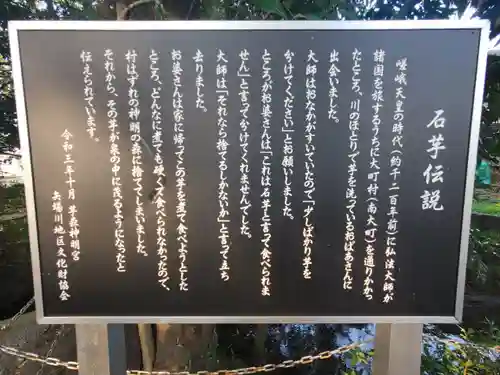 石芋伝説
嵯峨天皇の時代(約千二百年前)に弘法大師が
諸国を旅するうちに大町村(南大町)を通りかかっ
たところ、川のほとりで芋を洗っているおばあさんに
出会いました。
大師はおなかがすいていたので「少しばかり芋を
分けてください」とお願いしました。
ところがお婆さんは「これは石芋と言って食べられま
せん」と言って分けてくれませんでした。
大師は「それなら捨てるしかないか」と言って立ち
去りました。
お婆さんは家に帰ってこの芋を煮て食べようとした
ところ、どんなに煮ても硬くて食べられなかったので、
村はずれの神明の森に捨ててしまいました。
それから、その芋が泉の中に茂るようになったと
伝えられています。
令和三年十月 芋森神明宮
矢場川地区文化財協会